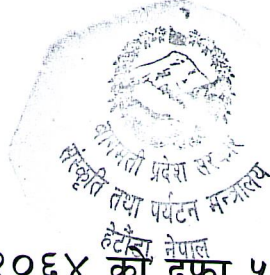 बागमती प्रदेश सरकार
संस्कृति तथा पर्यटन मन्त्रालय
हेटौंडा नेपाल
२०६४ को दफा ५